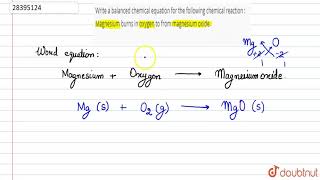 28395124
Write a balanced chemical equation for the following chemical reaction :
Magnesium burns in oxygen to from magnesium oxide
Word equation :
Mg O
+2 -2
1 1
Magnesium + Oxygen → Magnesium oxide
Mg (s) + O₂ (g) → MgO (s)
doubtnut